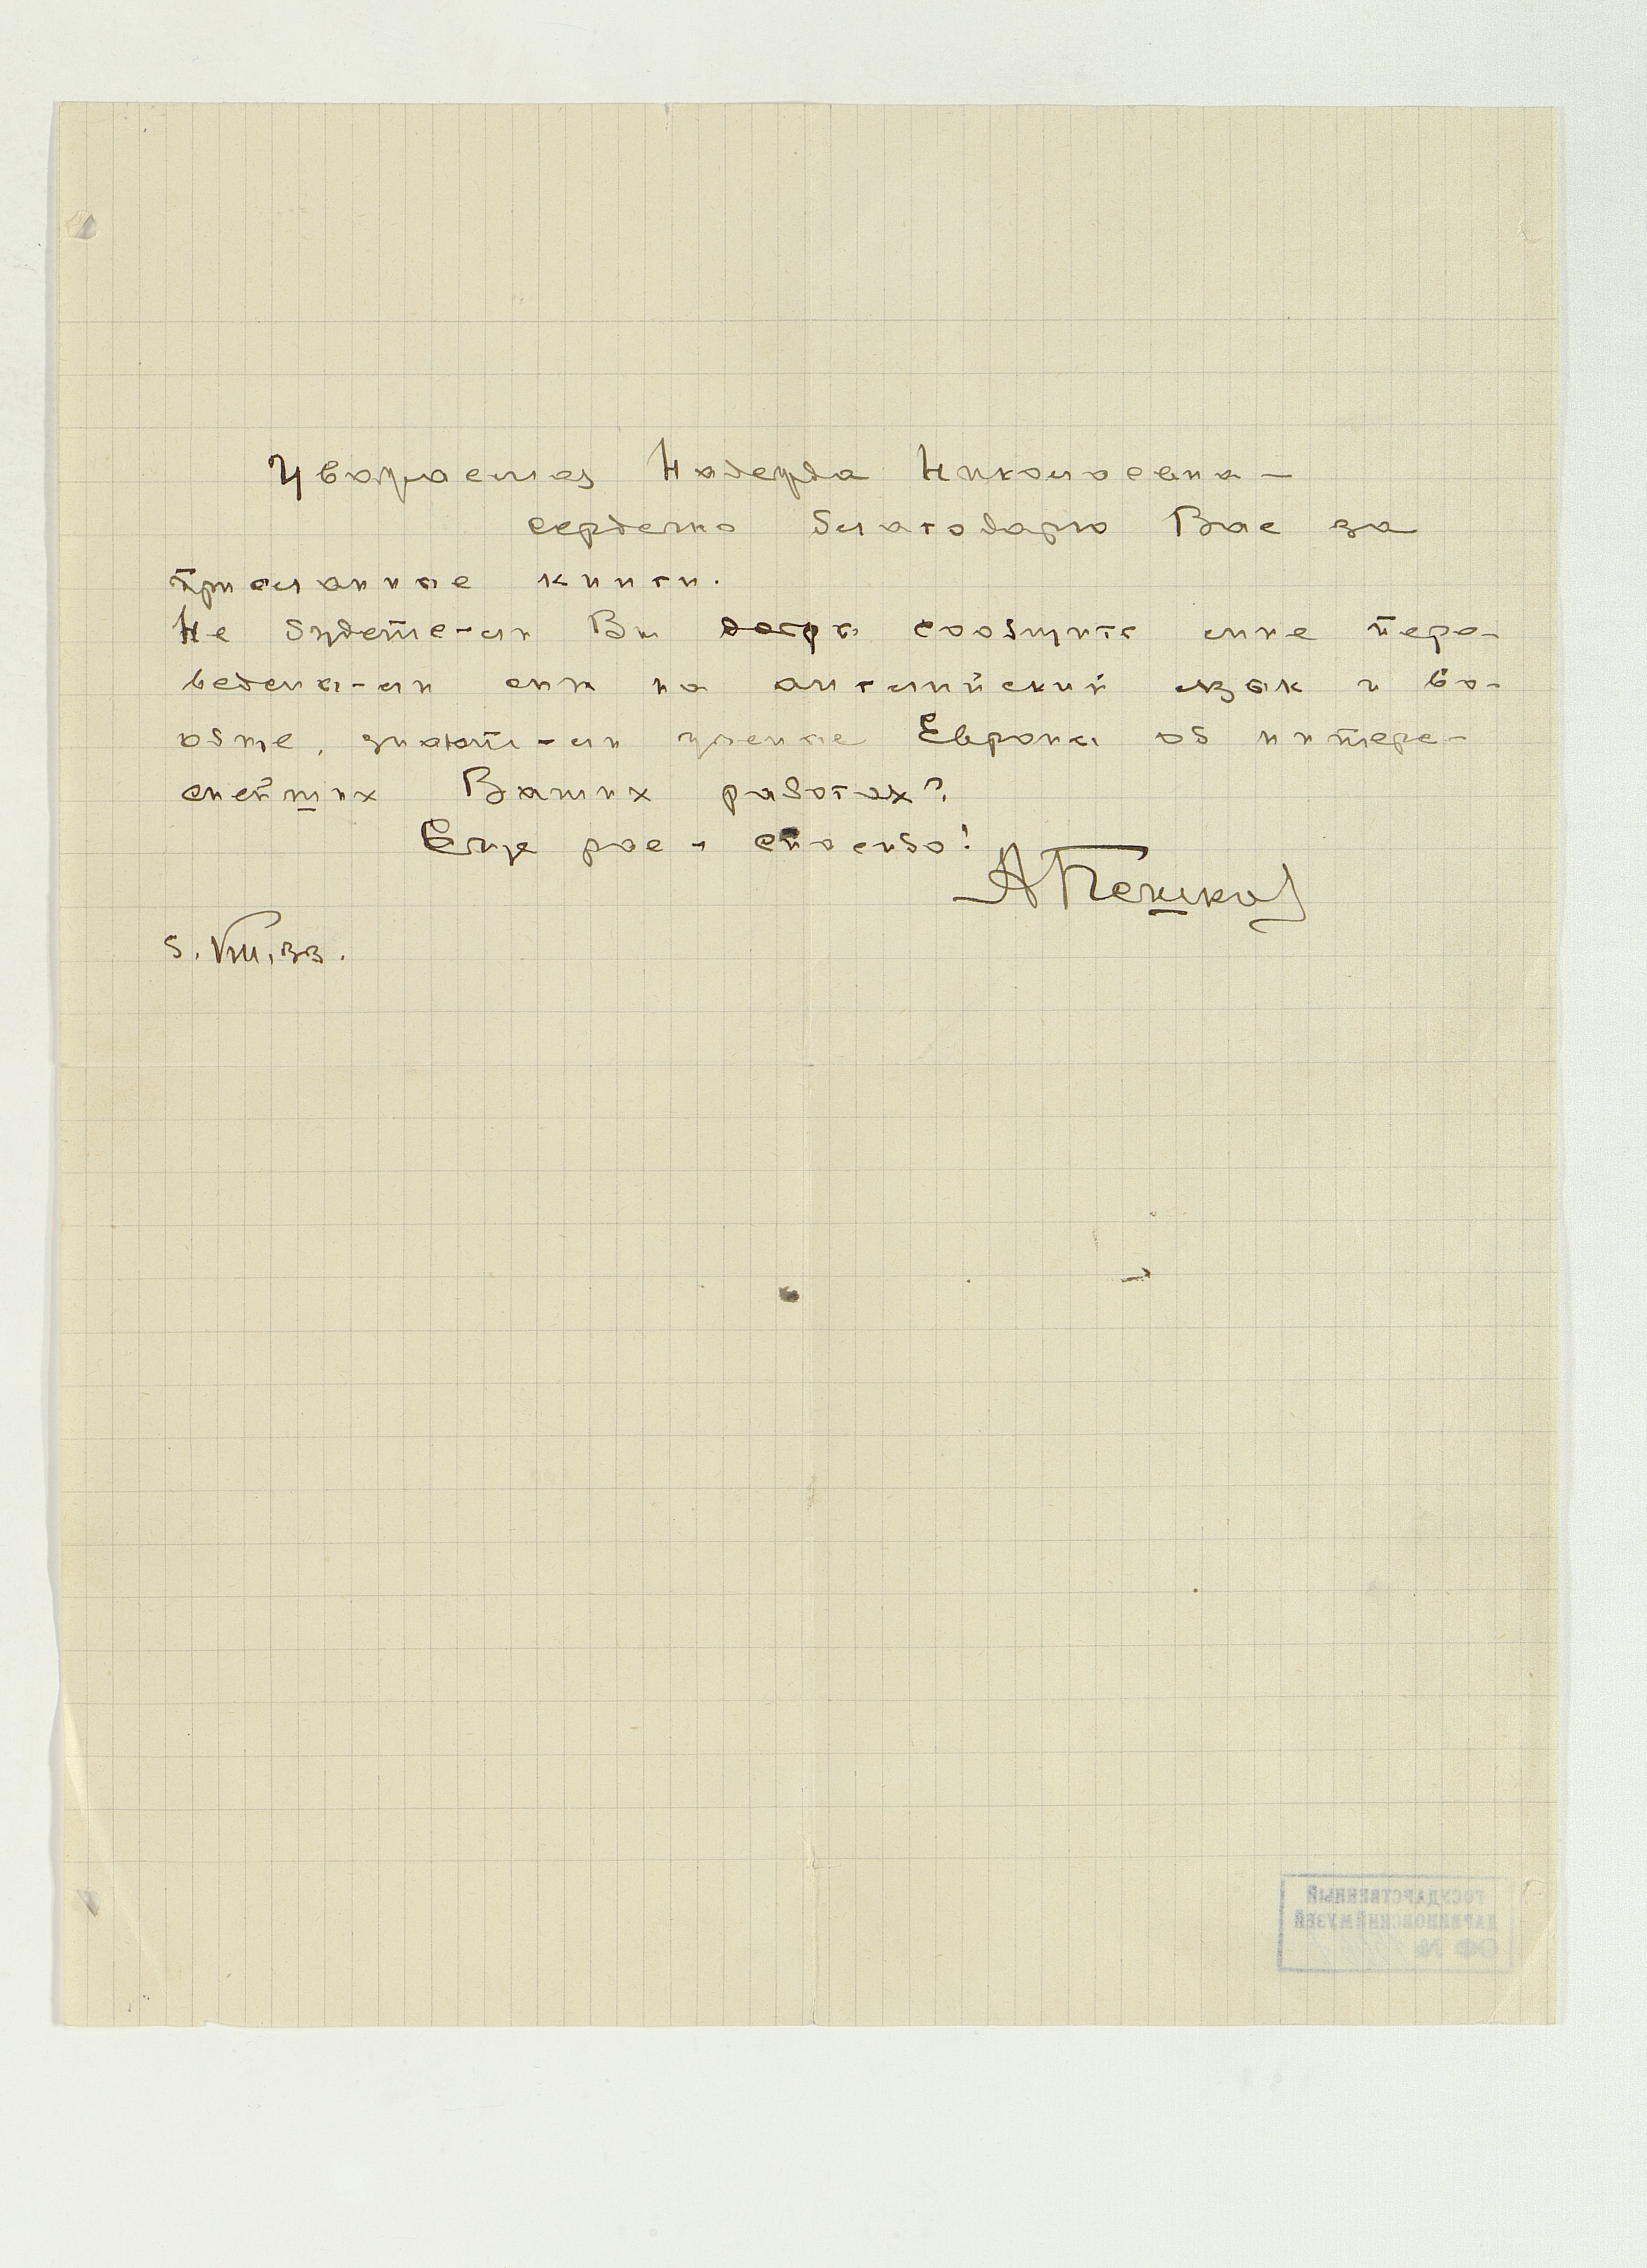 Уважаемая Надежда Николаевна —
сердечно благодарю Вас за
присланные книги.
Не будете-ли Вы добры сообщить мне пере-
ведены-ли они на английский язык и во-
обще, знают-ли ученые Европы об интере-
снейших Ваших работах?
Еще раз — спасибо!
А Пешков
5.VIII.33.
ГОСУДАРСТВЕННЫЙ
ДАРВИНОВСКИЙ МУЗЕЙ
ОФ №